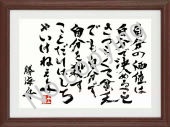 自分の価値は
自分で決めることさ
つらくて貧
でも自分で
自分を殺す
ことだけはしちゃ
やいけねえよ
勝海舟